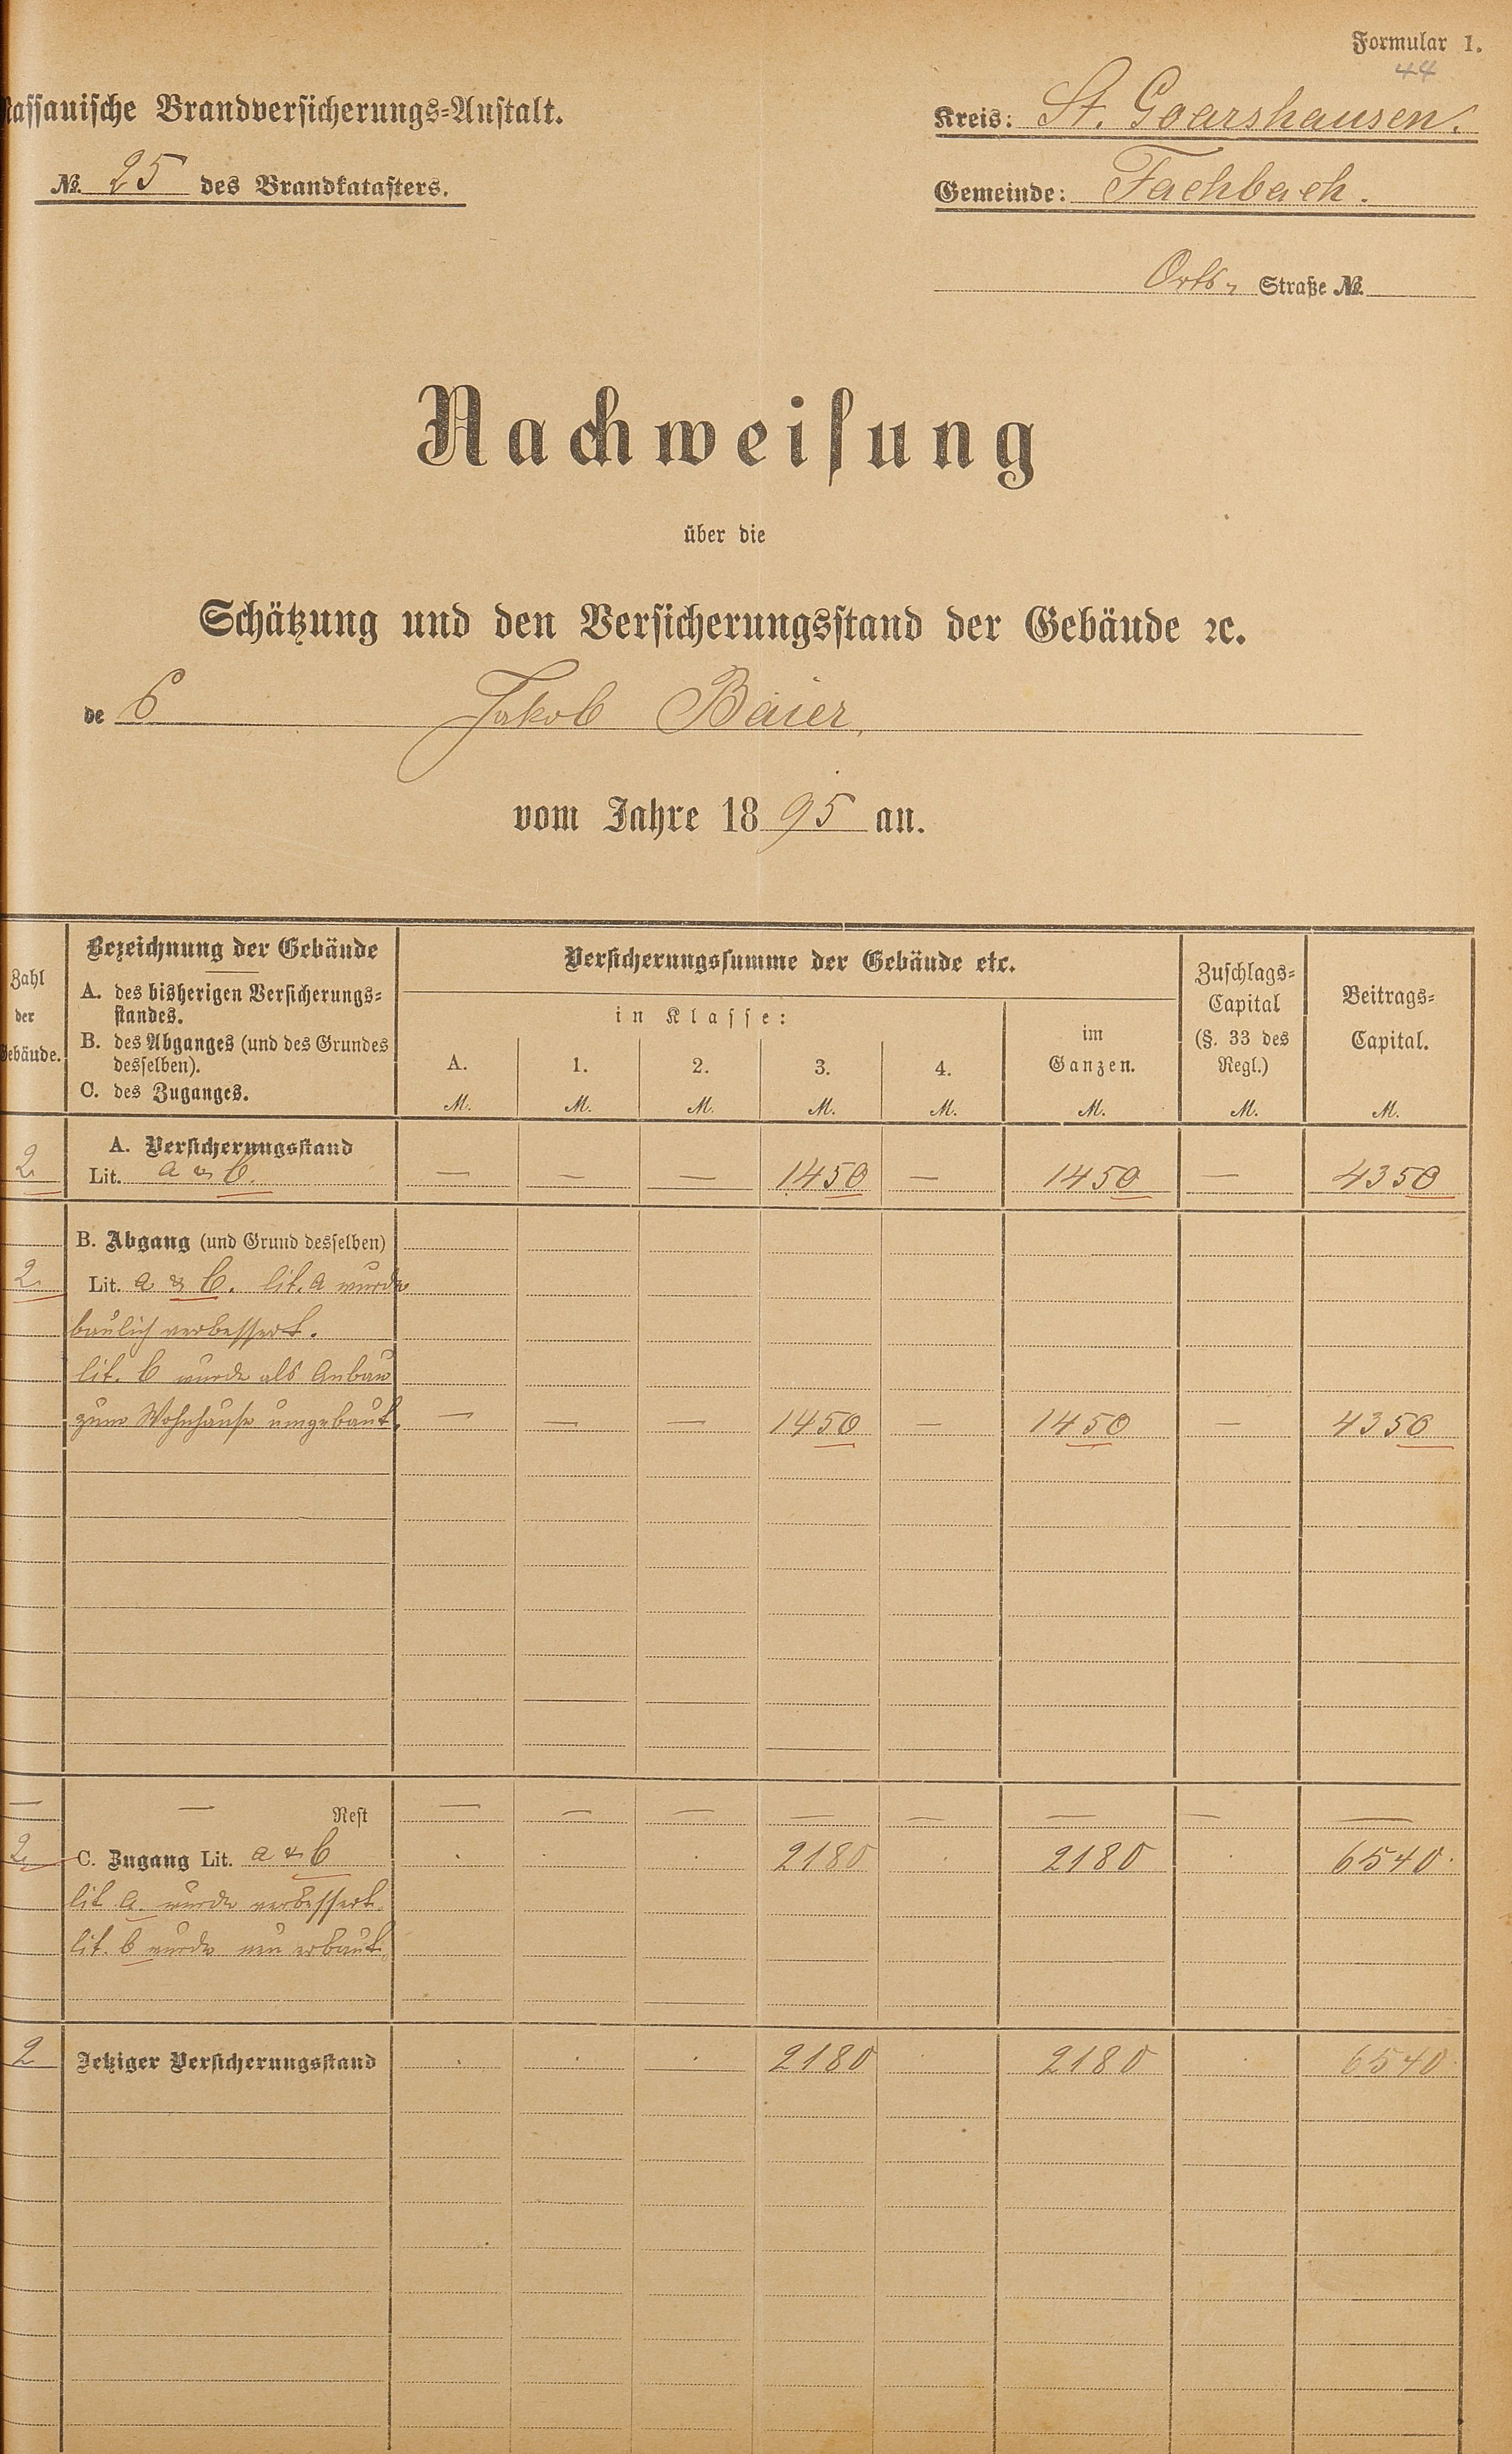 Formular 1.
44
Nassauische Brandversicherungs-Anstalt.
Kreis: St. Goarshausen.
№ 25 des Brandkatasters.
Gemeinde: Fachbach.
Orts- Straße №
Nachweisung
über die
Schätzung und den Versicherungsstand der Gebäude ꝛc.
de s Jakob Baier,
vom Jahre 1895 an.
Zahl der Gebäude.
Bezeichnung der Gebäude
A. des bisherigen Versicherungs-
standes.
B. des Abganges (und des Grundes
desselben).
C. des Zuganges.
Versicherungssumme der Gebäude etc.
in Klasse:
A. 1. 2. 3. 4.
im
Ganzen.
Zuschlags-
Capital
(§. 33 des
Regl.)
Beitrags-
Capital.
M. M. M. M. M. M. M. M.
A. Versicherungsstand
2 Lit. a & b. — — — 1450 — 1450 — 4350
B. Abgang (und Grund desselben)
2 Lit. a & b. lit. a wurde
baulich verbessert.
lit. b wurde als Anbau
zum Wohnhause umgebaut. — — — 1450 — 1450 — 4350
— — Rest — — — — — — — —
2 C. Zugang Lit. a & b . . . 2180 . 2180 . 6540.
lit. a. wurde verbessert.
lit. b wurde neu erbaut.
2 Jetziger Versicherungsstand . . . 2180 . 2180 . 6540.